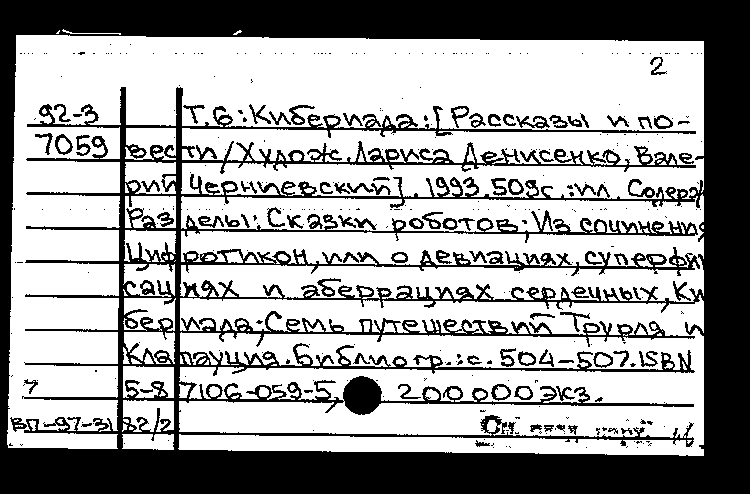 2
92-3 Т.6:Кибериада:[Рассказы и по-
7059 вести/Худож.Лариса Денисенко,Вале-
рий Черниевский].1993.509с.:ил. Содерж
Разделы:Сказки роботов;Из сочинения
Цифротикон,или о девиациях,суперфи
сациях и аберрациях сердечных,Ки
бериада;Семь путешествий Трурля и
Клапауция.Библиогр.:с.504-507.ISBN
7 5-87106-059-5, 200000экз.
ВП-97-31 82/2